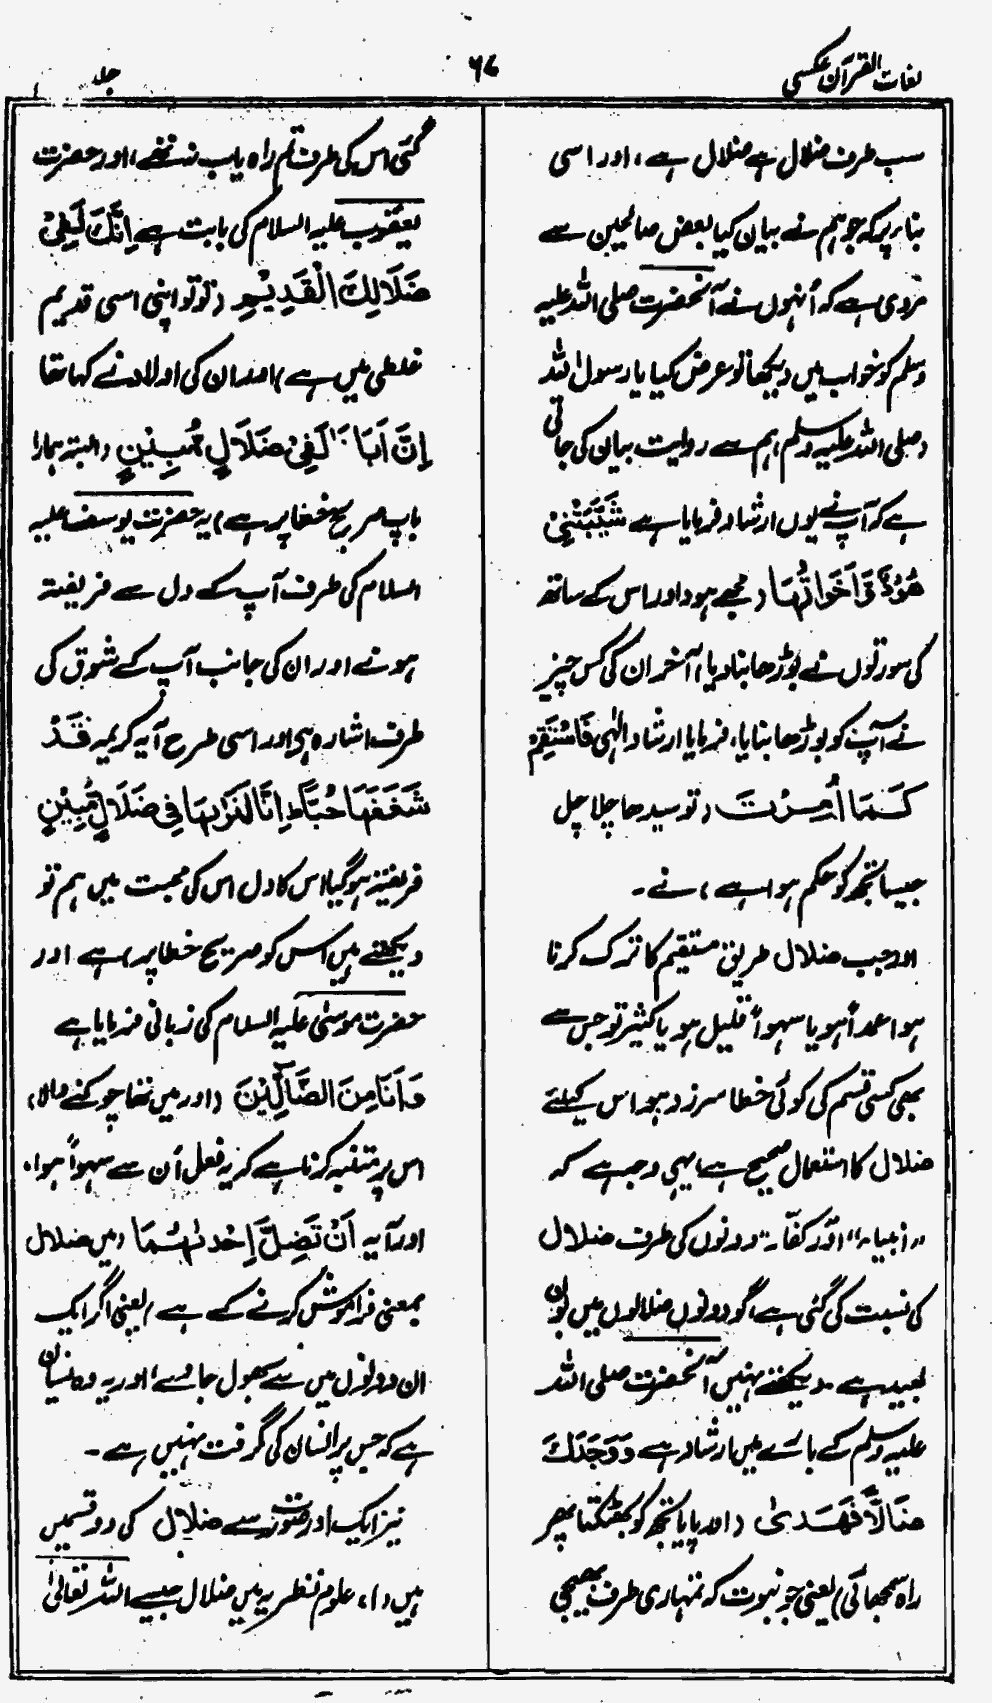 لغات القرآن عکسی
۶۷
جلد
سب طرف ضلال ہے ضلال ہے، اور اسی
بناء پر کہ جو ہم نے بیان کیا بعض صالحین سے
مروی ہے کہ اُنہوں نے آنحضرت صلی اللہ علیہ
وسلم کو خواب میں دیکھا تو عرض کیا یا رسول اللہ
(صلی اللہ علیہ وسلم) ہم سے روایت بیان کی جاتی
ہے کہ آپ نے یوں ارشاد فرمایا ہے شَيَّبَتْنِيْ
هُوْدٌ وَّاَخَوَاتُهَا (مجھے ہود اور اس کے ساتھ
کی سورتوں نے بوڑھا بنا دیا) آخر ان کی کس چیز
نے آپ کو بوڑھا بنایا، فرمایا ارشاد الٰہی فَاسْتَقِمْ
كَمَا اُمِرْتَ (تو سیدھا چلا چل
جیسا تجھ کو حکم ہوا ہے) نے۔
اور جب ضلال طریق مستقیم کا ترک کرنا
ہوا عمداً ہو یا سہواً قلیل ہو یا کثیر تو جس سے
بھی کسی قسم کی کوئی خطا سرزد ہو اس کیلئے
ضلال کا استعمال صحیح ہے، یہی وجہ ہے کہ
"انبیاء" اور "کفار" دونوں کی طرف ضلال
کی نسبت کی گئی ہے، گو دونوں ضلالوں میں بون
بعید ہے۔ دیکھئے نہیں آنحضرت صلی اللہ
علیہ وسلم کے بارے میں ارشاد ہے وَوَجَدَكَ
ضَالًّا فَهَدٰى (اور پایا تجھ کو بھٹکتا پھر
راہ سمجھائی) یعنی جو نبوت کہ تمہاری طرف بھیجی
گئی اس کی طرف تم راہ یاب نہ تھے، اور حضرت
یعقوب علیہ السلام کی بابت ہے اِنَّكَ لَفِيْ
ضَلَالِكَ الْقَدِيْمِ (تو تو اپنی اسی قدیم
غلطی میں ہے) اور ان کی اولاد نے کہا تھا
اِنَّ اَبَانَا لَفِيْ ضَلَالٍ مُّبِيْنٍ (البتہ ہمارا
باپ صریح خطا پر ہے) یہ حضرت یوسف علیہ
السلام کی طرف آپ کے دل سے فریفتہ
ہونے اور ان کی جانب آپ کے شوق کی
طرف اشارہ ہی اور اسی طرح آیہ کریمہ قَدْ
شَغَفَهَا حُبًّا اِنَّا لَنَرٰىهَا فِيْ ضَلَالٍ مُّبِيْنٍ
فریفتہ ہو گیا اس کا دل اس کی محبت میں ہم تو
دیکھتے ہیں اس کو صریح خطا پر) ہے اور
حضرت موسیٰ علیہ السلام کی زبانی فرمایا ہے
وَاَنَا مِنَ الضَّآلِّيْنَ (اور میں تھا چوکنے والا)
اس پر متنبہ کرنا ہے کہ یہ فعل اُن سے سہواً ہوا۔
اور آیہ اَنْ تَضِلَّ اِحْدٰىهُمَا میں ضلال
بمعنی فراموش کرنے کے ہے (یعنی اگر ایک
ان دونوں میں سے بھول جاوے) اور یہ وہ نسیان
ہے کہ جس پر انسان کی گرفت نہیں ہے۔
نیز ایک اور صورت سے ضلال کی دو قسمیں
ہیں (۱) علوم نظریہ میں ضلال جیسے اللہ تعالیٰ